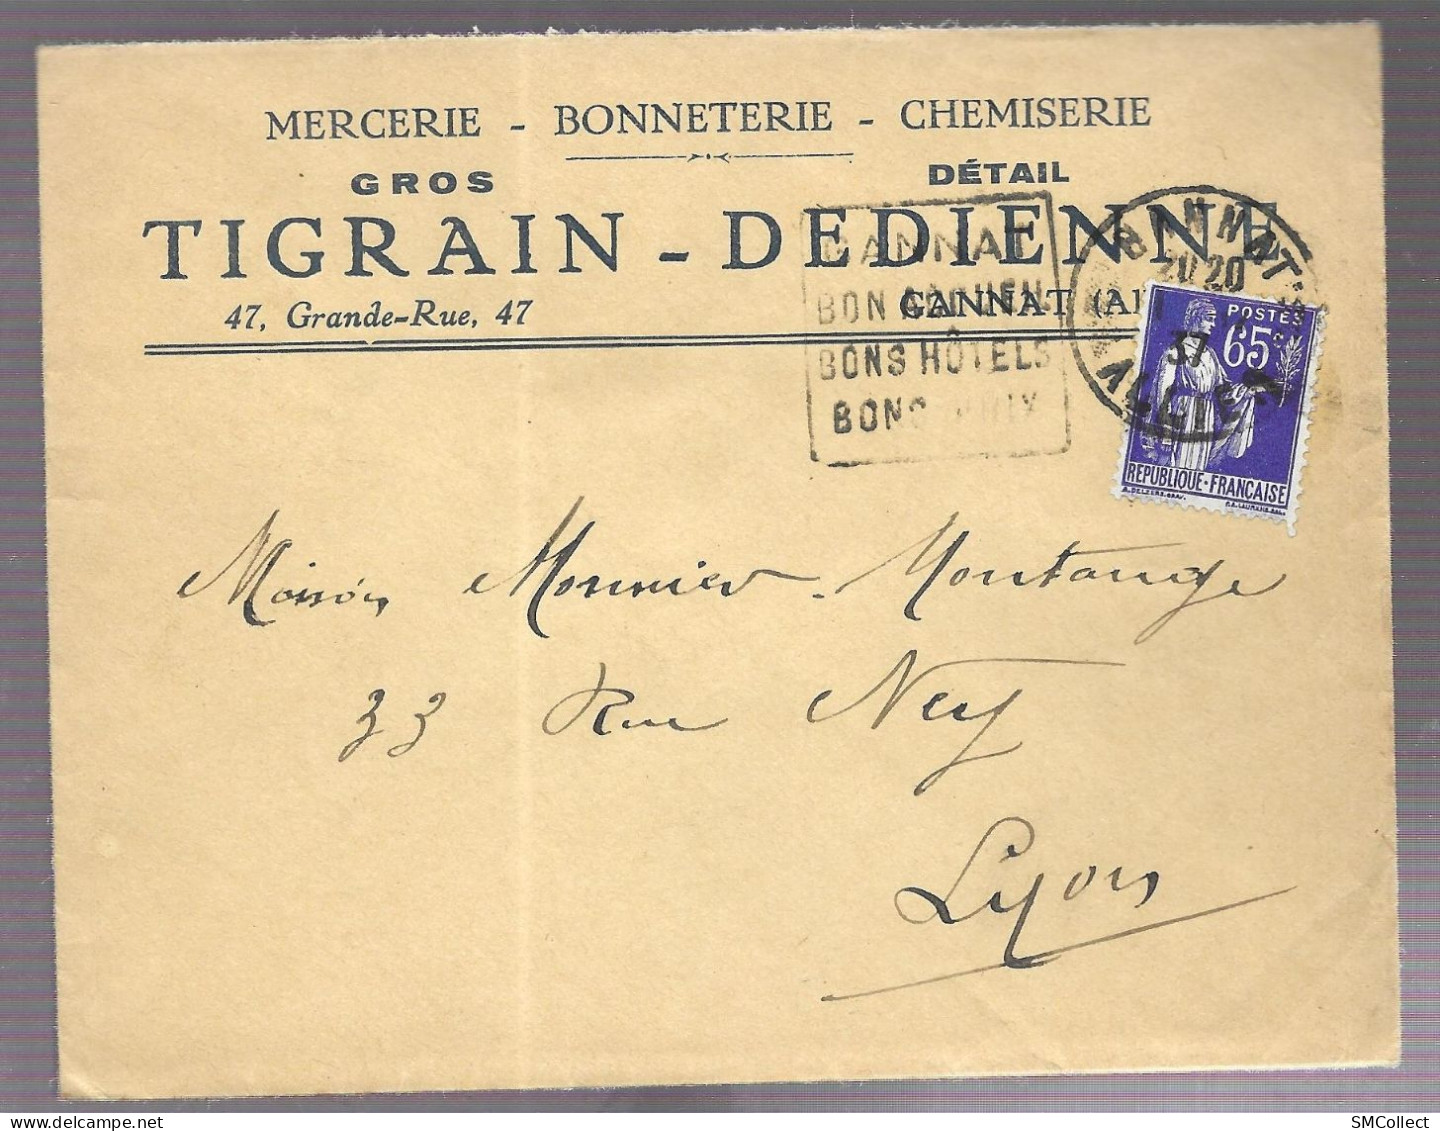 MERCERIE - BONNETERIE - CHEMISERIE
GROS DÉTAIL
TIGRAIN - DEDIENNE
47, Grande-Rue, 47 GANNAT (Al
GANNAT
BON ACCUEIL
BONS HÔTELS
BONS PRIX
GANNAT
20 20
37
ALLIER
POSTES
65
REPUBLIQUE-FRANÇAISE
Maison Monnier-Montange
33 Rue Ney
Lyon
SMCollect